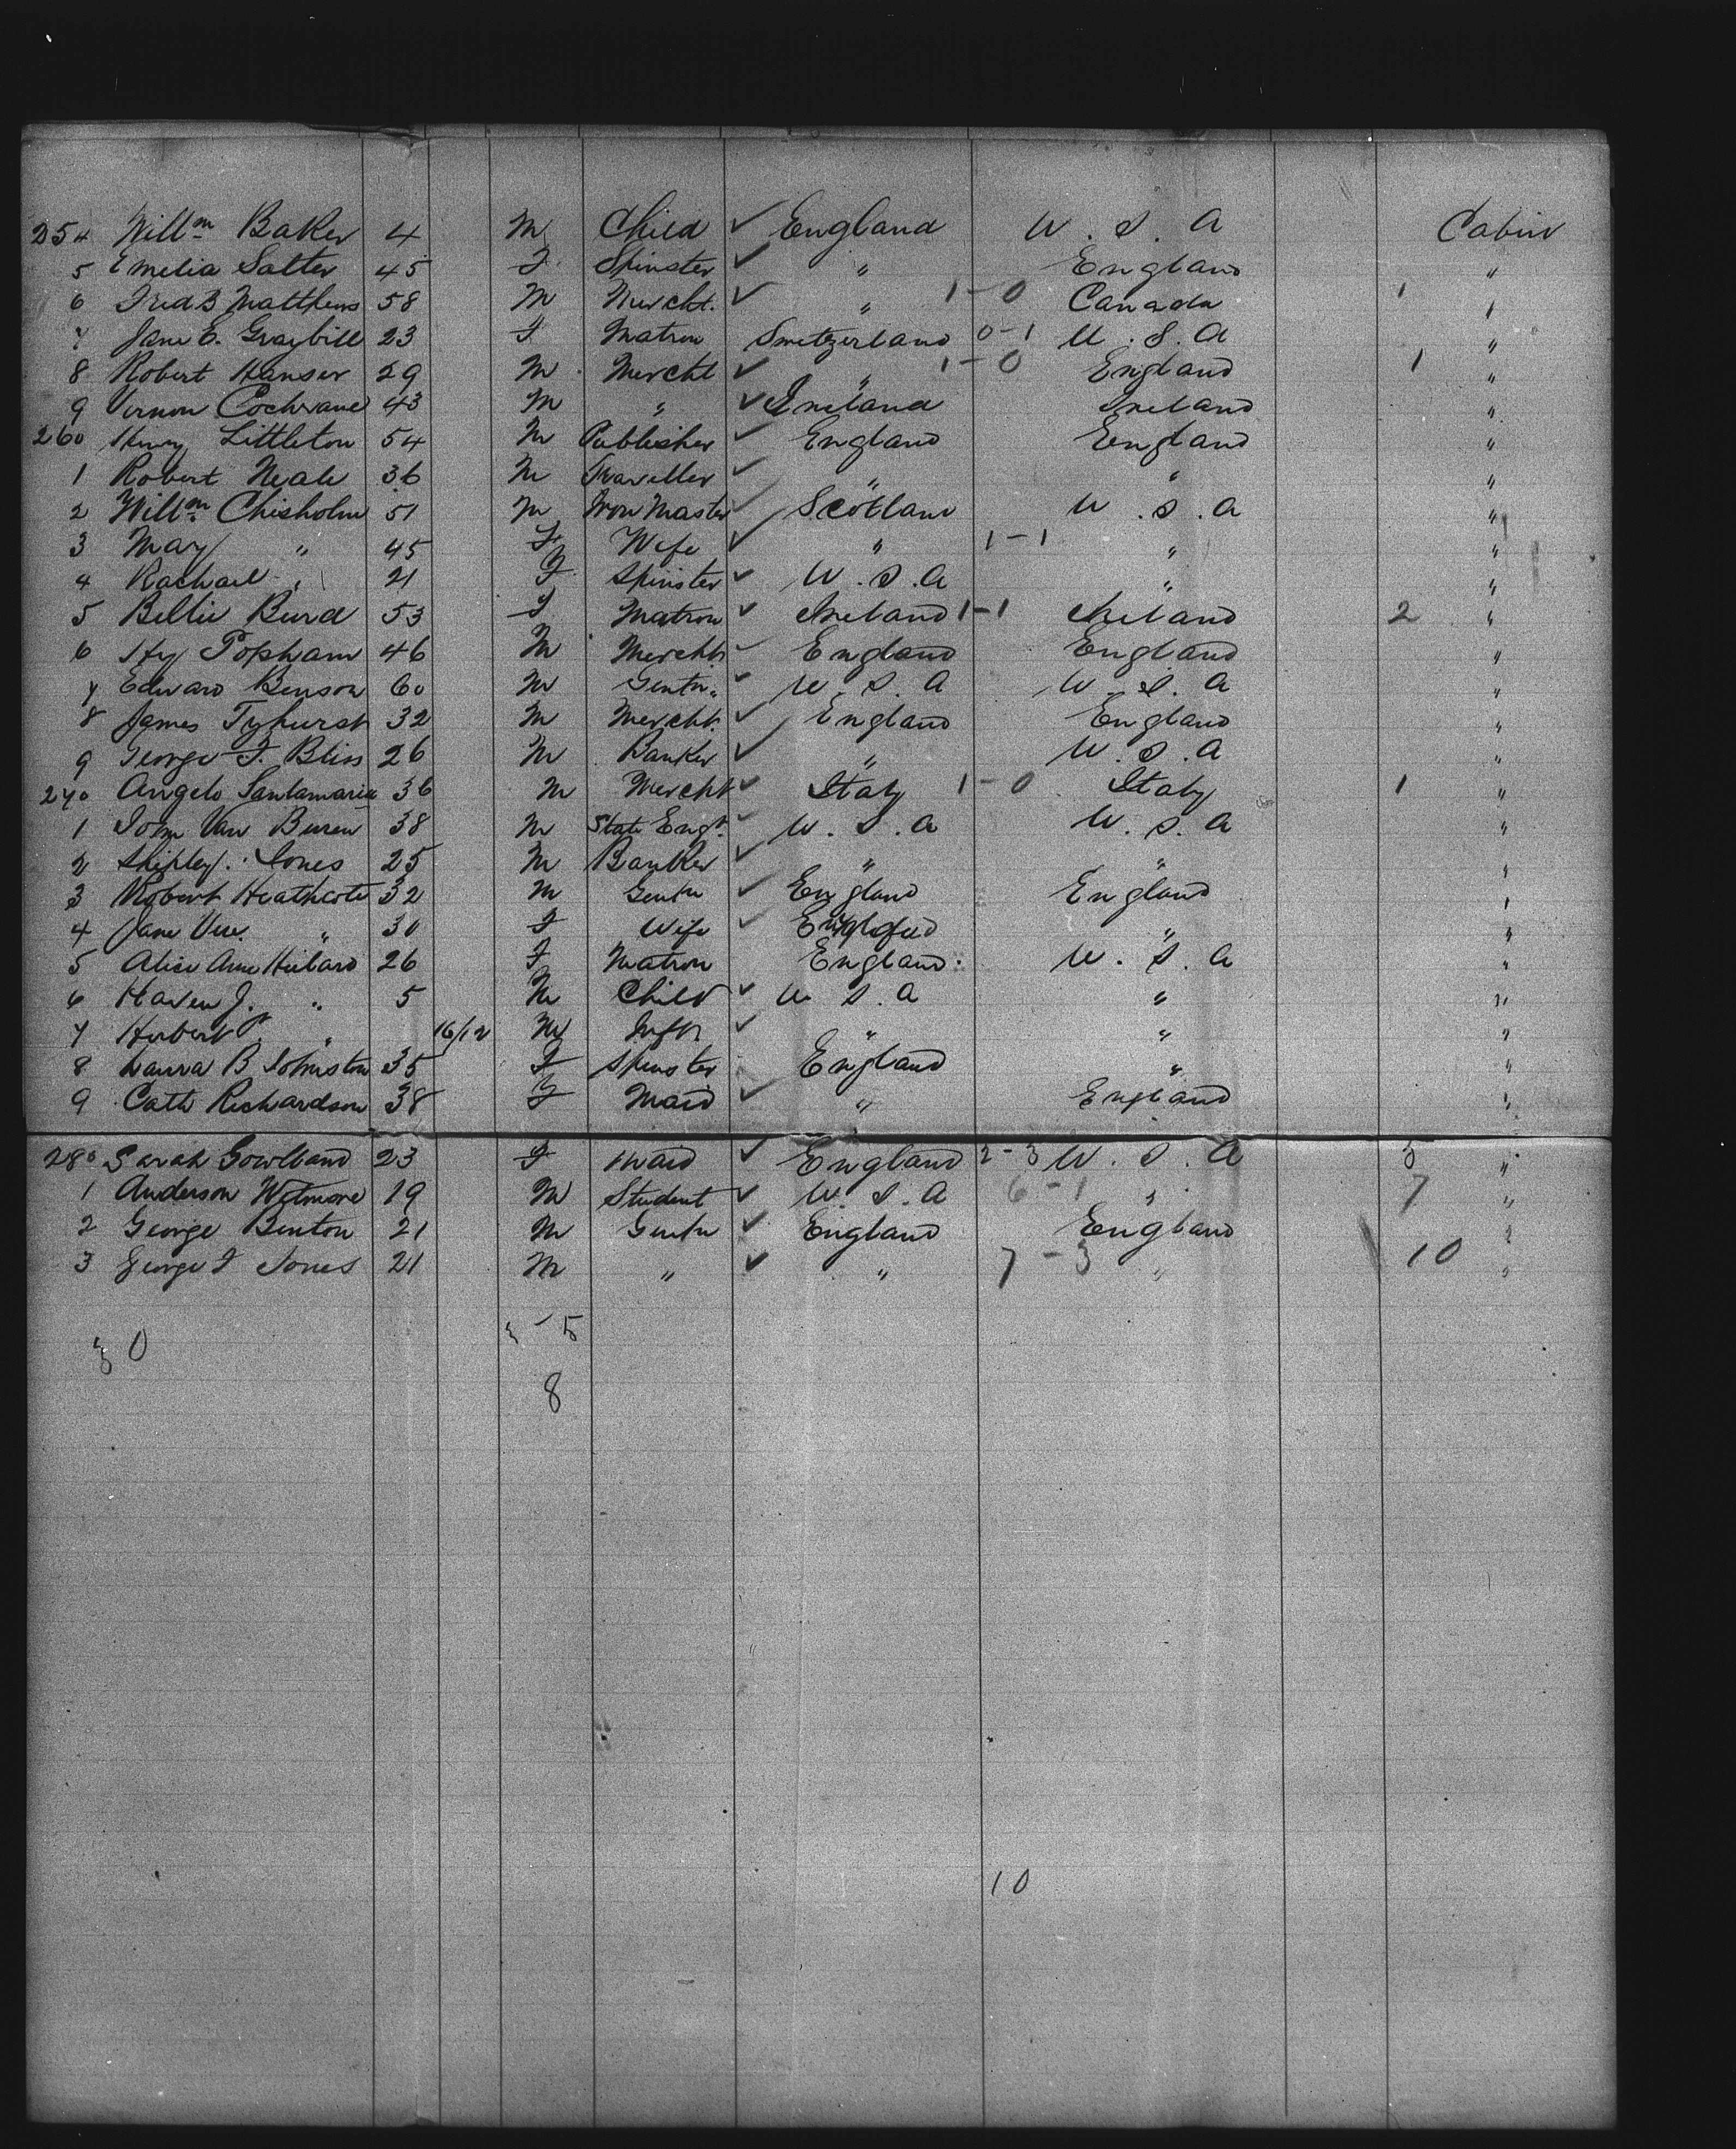 254 Willm Baker 4 M Child ✓ England U. S. A Cabin
5 Emelia Salter 45 F Spinster ✓ " England "
6 Fred B Matthews 58 M Mercht. ✓ " 1-0 Canada 1 "
7 Jane E. Graybill 23 F Matron Switzerland 0-1 U. S. A "
8 Robert Hanser 29 M Mercht ✓ " 1-0 England 1 "
9 Vernon Cochrane 43 M " ✓ Ireland Ireland "
260 Henry Littleton 54 M Publisher ✓ England England "
1 Robert Neale 36 M Traveller ✓ " " "
2 Willm Chisholm 51 M Iron Master ✓ Scotland U. S. A "
3 May " 45 F Wife ✓ " 1-1 " "
4 Rachael " 21 F Spinster ✓ U. S. A " "
5 Bellie Burd 53 F Matron ✓ Ireland 1-1 Ireland 2 "
6 Hy Popham 46 M Mercht ✓ England England "
7 Edward Benson 60 M Gentn. ✓ U. S. A U. S. A "
8 James Tyhurst 32 M Mercht. ✓ England England "
9 George F. Bliss 26 M Banker ✓ " U. S. A "
270 Angelo Santamaria 36 M Mercht ✓ Italy 1-0 Italy 1 "
1 John Van Buren 38 M State Engr. ✓ U. S. A U. S. A "
2 Shipley Jones 25 M Banker ✓ " " "
3 Robert Heathcote 32 M Gentn ✓ England England "
4 Jane " 30 F Wife ✓ " "
5 Alice Ann Hilbard 26 F Matron England U. S. A "
6 Haven J. " 5 M Child ✓ U. S. A " "
7 Herbert P. " 16/12 M Inft ✓ " " "
8 Laura B Johnston 35 F Spinster England " "
9 Cath Richardson 38 F Maid ✓ " England "
280 Sarah Gowlland 23 F Maid ✓ England 2-3 U. S. A 5 "
1 Anderson Wetmore 19 M Student ✓ U. S. A 6-1 " 7 "
2 George Benton 21 M Gentn ✓ England England "
3 George F Jones 21 M " ✓ " 7-3 " 10 "
30
8
10